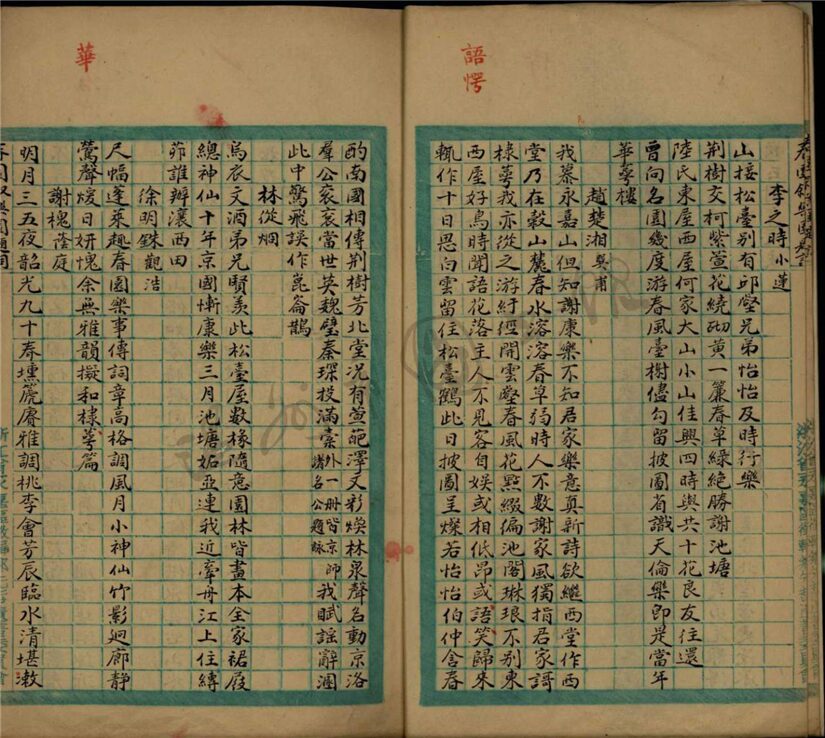 語愕
李之時小蓮
山接松臺別有邱壑兄弟怡怡及時行樂
荆樹交柯紫萱花繞砌黄一簾春草綠絶勝謝池塘
陸氏東屋西屋何家大山小山佳興四時與共十花良友往還
曾向名園幾度游春風臺榭儘勾留披圖省識天倫樂即是當年
華萼樓
趙楚湘
我慕永嘉山但知謝康樂不知君家樂意真新詩欲繼西堂作西
堂乃在榖山麓春水溶溶春草弱時人不數謝家風獨指君家謌
棣萼我亦從之游紆徑開雲壑春風花點綴偏池閣琳琅不别東
西屋好鳥時聞語花落主人不見客自娱或相低昂或語笑歸來
輒作十日思白雲留住松臺鶴此日披圖呈燦若怡怡伯仲含春
華
酌南國相傳荆樹芳北堂况有萱葩澤文彩焕林泉聲名動京洛
羣公衮衮當世英魏璧秦琛投滿橐外一册皆京師諸名公題詠我賦謡辭溷
此中驚飛誤作崑崙鵲
林從炯
烏衣文酒弟兄賢羡此松臺屋數椽隨意園林皆畫本全家裙屐
總神仙十年京國慚康樂三月池塘妬亞連我近牽舟江上住縳
茆誰辦瀼西田
徐明銖觀浩
尺幅蓬萊趣春園樂事傳詞章高格調風月小神仙竹影廻廊静
鶯聲煖日妍愧余無雅韻擬和棣萼篇
謝槐蔭庭
明月三五夜韶光九十春壎箎賡雅調桃李會芳辰臨水清堪漱